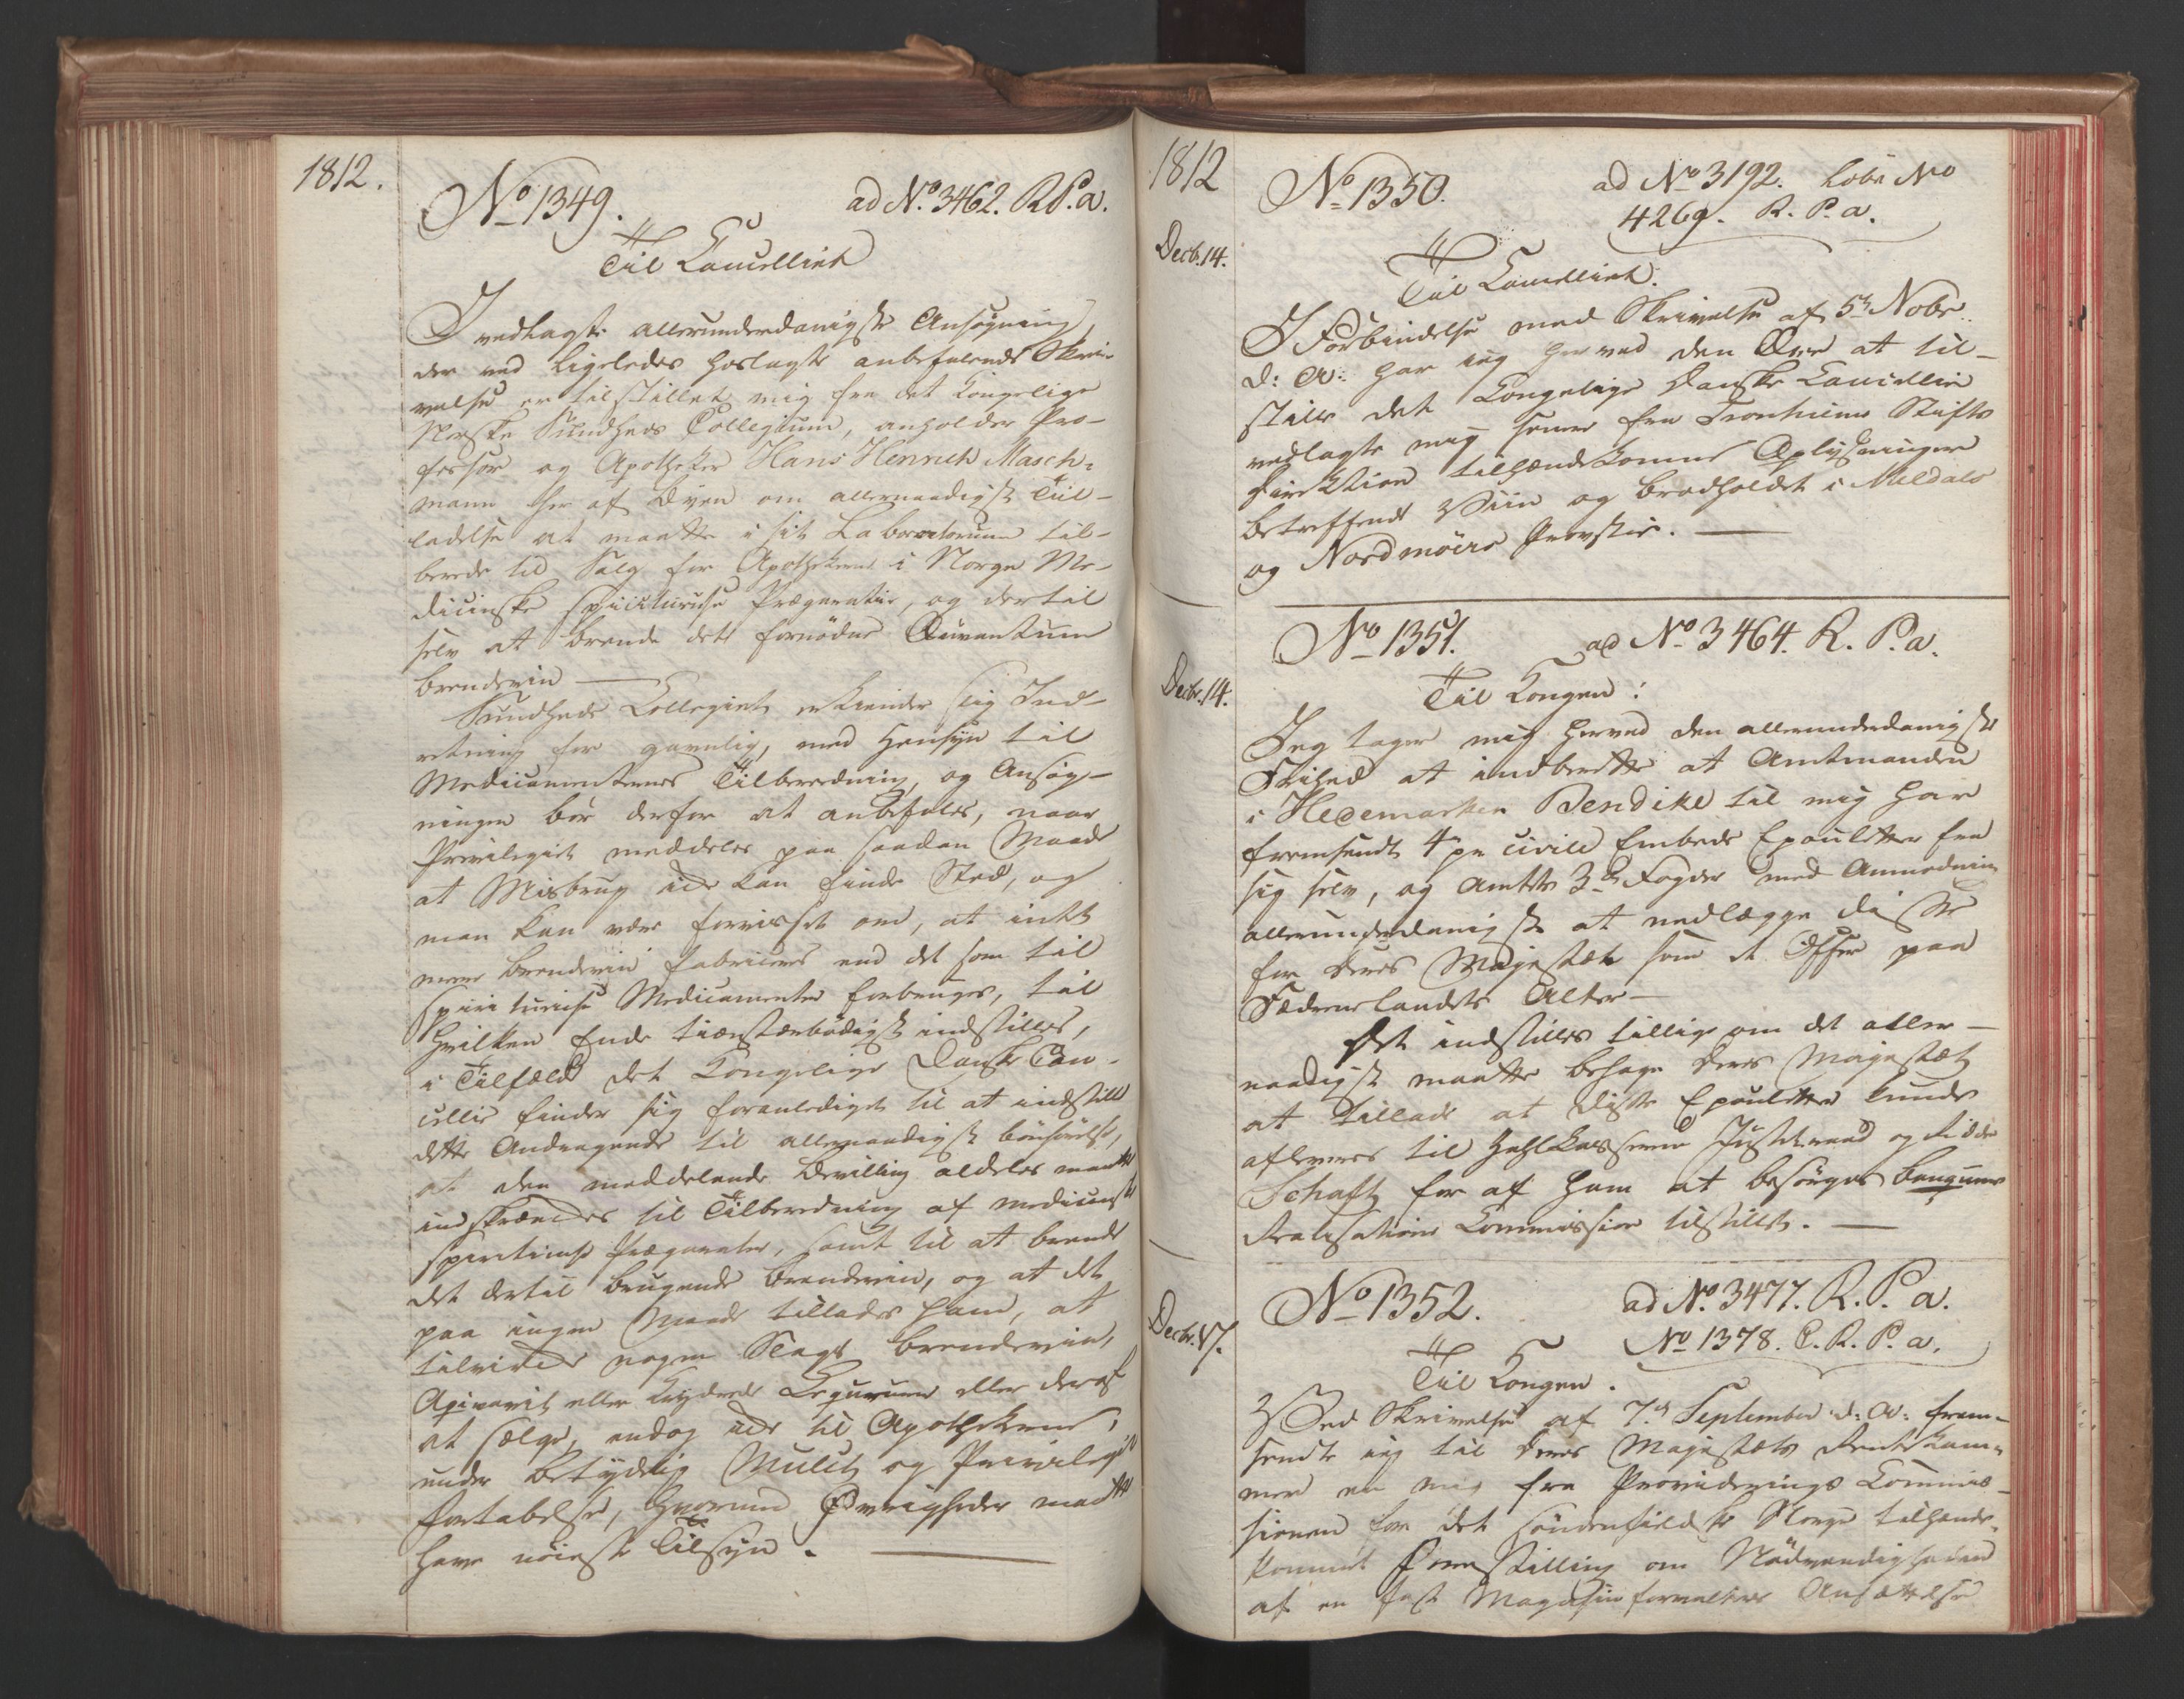 1812.
No 1349. ad No. 3462. R. P. a.
Til Cancelliet
I vedlagte allerunderdanigste Ansøgning,
der med ligeledes hoslagte anbefalende Skri-
velse er tilstillet mig fra det Kongelige
Norske Sundheds Collegium, anholder Pro-
fessor og Apotheker Hans Henrich Masch-
mann her af Byen om allernaadigst Til-
ladelse at maatte i sit Laboratorium til-
berede til Salg for Apothekerne i Norge Me-
dicinske spirituøse Præparater, og dertil
selv at brænde dett fornødne Qvantum
Brændeviin —
Sundheds Collegiet erkiender slig Ind-
retning for gavnlig, med Hensyn til
Medicamenternes Tilberedning, og Ansøg-
ningen bør derfor at anbefales, naar
Privilegiet meddeles paa saadan Maade
at Misbrug icke kan finde Sted, og
man kan være forvisset om, at intet
mere Brændeviin fabriceres end det som til
spirituøse Medicamenter forbruges, til
hvilken Ende tienstærbødigst indstilles,
i Tilfælde det Kongelige Danske Can-
cellie finder sig foranlediget til at indstille
dette Andragende til allernaadigst bønhørelse,
at den meddelende Bevilling aldeles maatte
indskrænkes til Tilberedning af medicinske
spirituøse Præparater, samt til at brænde
det dertil brugende Brændeviin, og at det
paa ingen Maade tillades ham, at
tilvirke nogen Slags Brændeviin,
Aqvavit eller krydrede Liqueurer eller deraf
at sælge, endog icke til Apothekerne,
under betydelig Mulct og Privilegiets
Fortabelse, hvormed Øvrigheden maatte
have nøieste Tilsyn. —
1812
Decb. 14.
No 1350. ad No 3192. Løbe No
4269. R. P. a.
Til Cancelliet.
I Forbindelse med Skrivelse af 5te Novbr.
d: A: har ieg herved den Ære at til-
stille det Kongelige Danske Cancellie
vedlagte mig senere fra Tronhiems Stifts
Direktion tilhændekomne Oplysninger
betreffende Viin og Brødholdet i Meldals
og Nordmøers Provstie. —
Decbr. 14.
No 1351. ad No 3464. R. P. a.
Til Kongen:
Jeg tager mig herved den allerunderdanigste
Frihed at indberette at Amtmanden
i Hedemarken Bendike til mig har
fremsendt 4 pr civile Embeds Epauletter fra
sig selv, og Amtets 3de Fogder med Anmodning
allerunderdanigst at nedlægge disse
for Deres Majestæt som et Offer paa
Fædrenelandets Alter —
Det indstilles tillige om det aller-
naadigst maatte behage Deres Majestæt
at tillade at disse Epauletter kunde
afleveres til Zahlkasserer Justitsraad og Ridder
Schaft for af ham at besørges bemeldte
Realisations Commission tilstillet. —
Decbr. 17.
No 1352. ad No. 3477. R. P. a.
No 1378. C. R. P. a.
Til Kongen.
Ved Skrivelse af 7de September d: A: frem-
sendte ieg til Deres Majestæts Rentekam-
mer en mig fra Providerings Commis-
sionen for det søndenfieldske Norge tilhænde-
kommet Forestilling om Nødvendigheden
af en fast Magasinforvalters Ansættelse